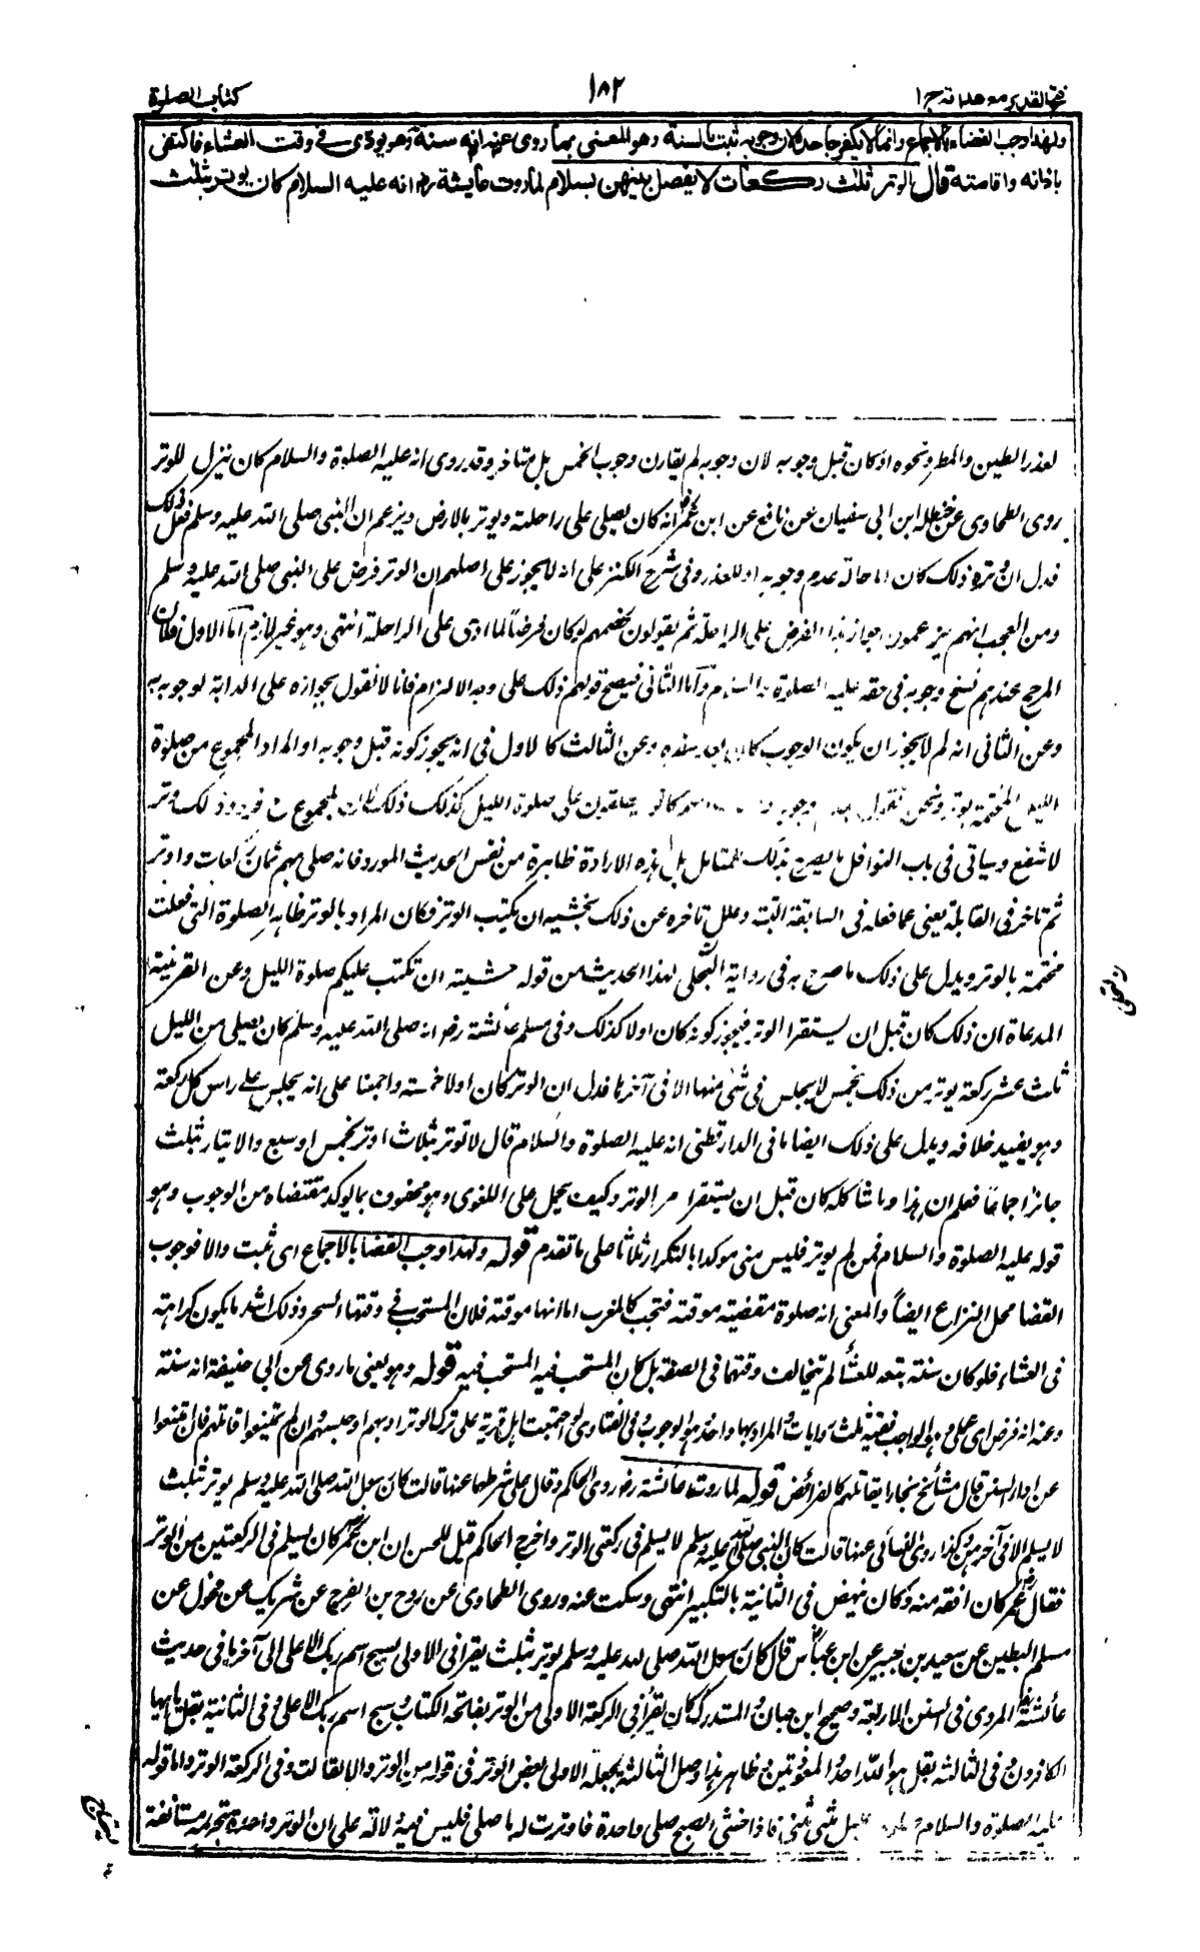 فتح القدير مع هدايه ج ١
١٨٢
كتاب الصلوة
ولهذا وجب القضاء بالاجماع وانما لا يكفر جاحده لان وجوبه ثبت بالسنة وهو المعنى بما روى عنه انه سنة وهو يودى في وقت العشاء فاكتفى
باذانه واقامته قال الوتر ثلث ركعات لا يفصل بينهن بسلام لما روت عايشة رضـ انه عليه السلام كان يوتر بثلث
لعذر الطين والمطر ونحوه او كان قبل وجوبه لان وجوبه لم يقارن وجوب الخمس بل متاخر وقد روى انه عليه الصلوة والسلام كان ينزل للوتر
روى الطحاوى عن حنظلة ابن ابى سفيان عن نافع عن ابن عمر انه كان يصلى على راحلته ويوتر بالارض ويزعم ان النبى صلى الله عليه وسلم فعل ذلك
فدل ان وتره ذلك كان اما حالة عدم وجوبه او للعذر وفى شرح الكنز على انه لا يجوز على اصلهم ان الوتر فرض على النبى صلى الله عليه وسلم
ومن العجب انهم يزعمون جواز هذا الفرض على الراحلة ثم يقولون لخصمهم لو كان فرضا لما ادى على الراحلة انتهى وهو غير لازم اما الاول فلان
المرجح عندهم نسخ وجوبه فى حقه عليه الصلوة والسلام واما الثانى فيصح قولهم ذلك على وجه الالزام فانا لا نقول بجوازه على الدابة لوجوبه
وعن الثانى انه لم لا يجوز ان يكون الوجوب كان بعد سفره وعن الثالث كالاول فى انه يجوز كونه قبل وجوبه او المراد المجموع من صلوة
الليل المختتمة بوتر ونحن نقول بعدم وجوبه كانوا يطلقون على صلوة الليل كذلك ذلك المجموع فرد وذلك وتر
لا شفع وسياتى فى باب النوافل ما يصرح بذلك للمتامل بل هذه الارادة ظاهرة من نفس الحديث المورد فانه صلى بهم ثمان ركعات واوتر
ثم تاخر فى القابلة يعنى عما فعله فى السابقة البتة وعلل تاخره عن ذلك بخشية ان يكتب الوتر فكان المراد بالوتر ظاهرا الصلوة التى فعلت
مختتمة بالوتر ويدل على ذلك ما صرح به فى رواية البجلى لهذا الحديث من قوله خشيته ان تكتب عليكم صلوة الليل وعن القرينة
المدعاة ان ذلك كان قبل ان يستقر الوتر فيجوز كونه كان اولا كذلك وفى مسلم عائشة رضـ انه صلى الله عليه وسلم كان يصلى من الليل
ثلث عشر ركعة يوتر من ذلك بخمس لا يجلس فى شئ منها الا فى آخرها فدل ان الوتر كان اولا خمسة واجمعنا على انه يجلس على راس كل ركعة
وهو يفيد خلافه ويدل على ذلك ايضا ما فى الدارقطنى انه عليه الصلوة والسلام قال لا توتر بثلاث اوتر بخمس او سبع والايتار بثلث
جائز اجماعا فعلم ان هذا وما شاكله كان قبل ان يستقر امر الوتر وكيف يحمل على اللغوى وهو محفوف بما يوكد مقتضاه من الوجوب وهو
قوله عليه الصلوة والسلام فمن لم يوتر فليس منى موكدا بالتكرار ثلاثا صلى ما تقدم قوله ولهذا وجب القضا بالاجماع اى ثبت والا فوجوب
القضا محل النزاع ايضا والمعنى انه صلوة مقضية موقتة فتجب كالمغرب اما انها موقتة فلان المستحب فى وقتها السحر وذلك اشد ما يكون كراهة
فى العشاء فلو كان سنة تبعه للعشا لم تخالف وقتهما فى الصفة بل كان المستحب فيه المستحب فيه قوله وهو يعنى ما روى عن ابى حنيفة انه سنة
وعنه انه فرض اى عملى وهو الواجب فعنه ثلث روايات والمراد بها واحد وهو الوجوب وفى الفتاوى لو اجتمعت اهل قرية على ترك الوتر ادبهم وحبسهم وان لم يمتنعوا قاتلهم فان امتنعوا
عن اداء السنن قال مشائخ بخارا يقاتلهم كالفرائض قوله لما روت عائشة رضـ روى الحاكم وقال على شرطهما عنها قالت كان رسول الله صلى الله عليه وسلم يوتر بثلث
لا يسلم الا فى آخرهن وكذا روى النسائى عنها قالت كان النبى صلى الله عليه وسلم لا يسلم فى ركعتى الوتر واخرج الحاكم قيل للحسن ان ابن عمر كان يسلم فى الركعتين من الوتر
فقال عمر كان افقه منه وكان ينهض فى الثانية بالتكبير انتهى وسكت عنه وروى الطحاوى عن روح بن الفرج عن شريك عن مخول عن
مسلم البطين عن سعيد بن جبير عن ابن عباس قال كان رسول الله صلى الله عليه وسلم يوتر بثلث يقرا فى الاولى بسبح اسم ربك الاعلى الى آخرها فى حديث
عائشة المروى فى السنن الاربعة وصحيح ابن حبان والمستدرك كان يقرأ فى الركعة الاولى من الوتر بفاتحة الكتاب وسبح اسم ربك الاعلى وفى الثانية بقل يا ايها
الكافرون وفى الثالثة بقل هو الله احد والمعوذتين ظاهر هذا وصل الثالثة بجعله الاولى بعض الوتر فى قوله من الوتر والا لقالت وفى الركعة الوتر واما قوله
عليه الصلوة والسلام صلوة الليل مثنى مثنى فاذا خشى الصبح صلى واحدة فاوترت له ما صلى فليس فيه لالة على ان الوتر واحدة بتحريمة مستانفة